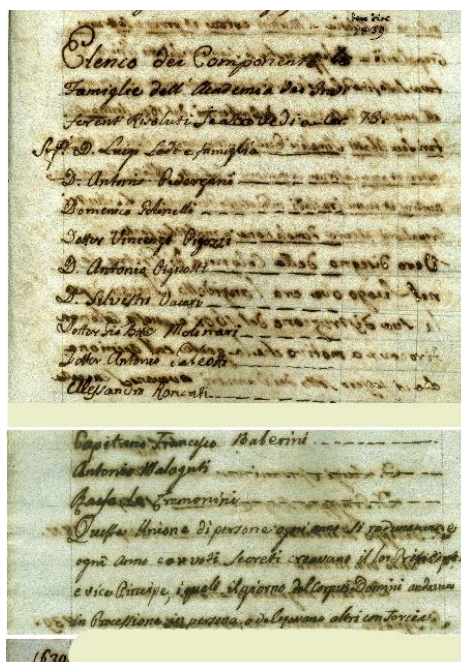 Elenco dei Componenti le
Famiglie dell' Academia dei
ferenti Risoluti
D. Luigi Lodi e famiglia
D. Antonio Pederzani
Domenico
Dottor Vincenzo Pigozzi
D. Antonio Pignatti
D. Silvestri Vacari
Dottor Gio Batta Molinari
Dottor Antonio Galeotti
Alessandro
Capitano Francesco Baberini
Antonio Malaguti
Cremonini
Questa Unione di persone ogni anno si redunavano e
ogni Anno con voti secreti creavano il lor
e vice Principe, i quali il giorno del Corpus Domini andavano
in Processione in persona, o delegavano altri con Torcia
1630